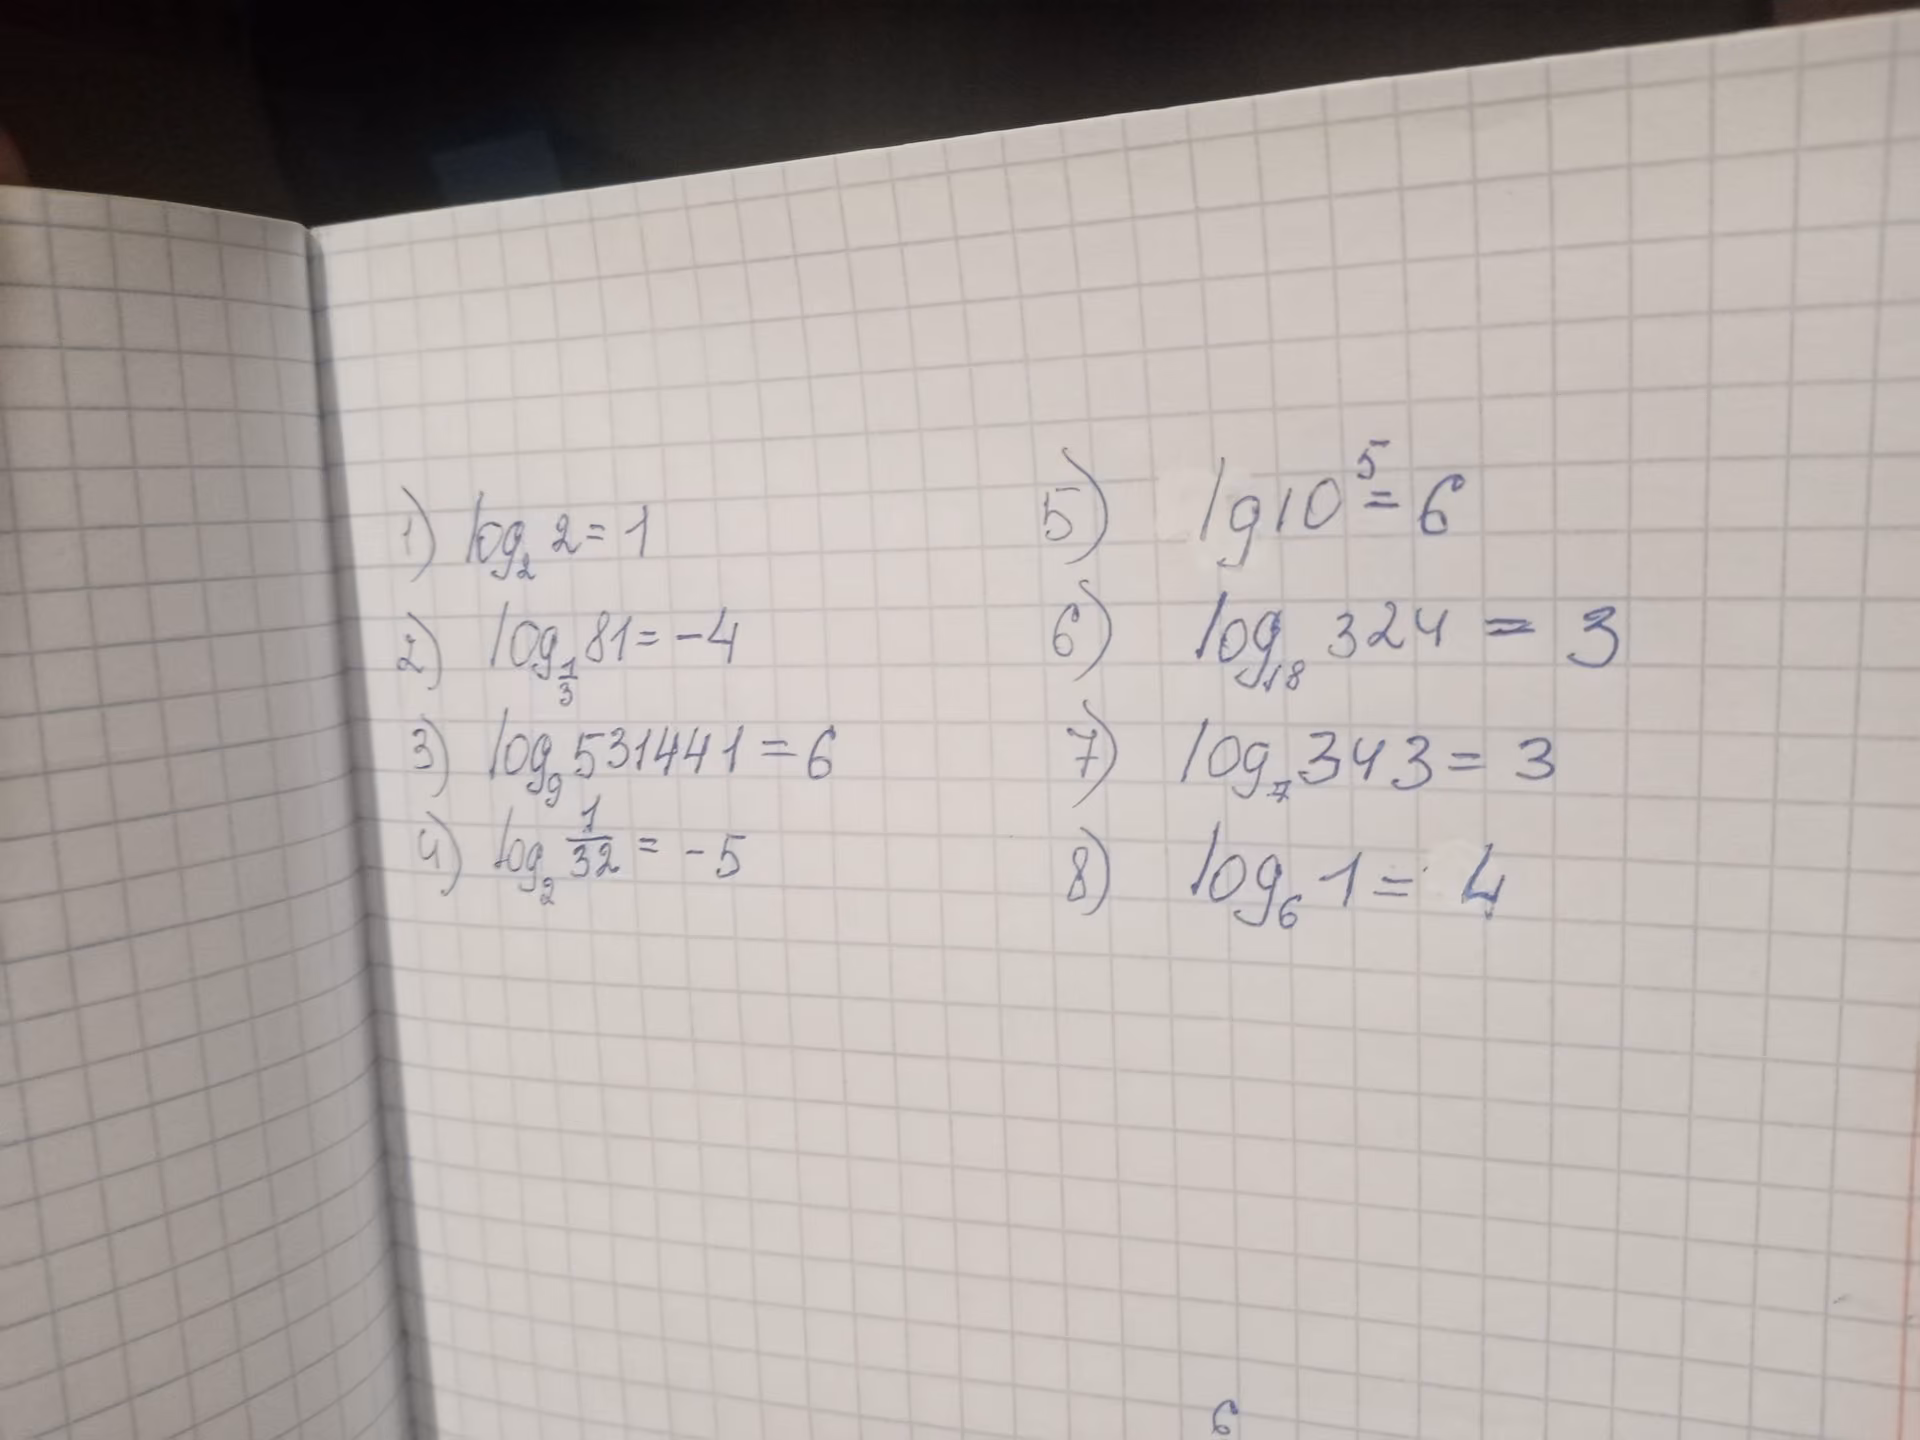 1) log₂ 2 = 1
2) log_{1/3} 81 = -4
3) log₉ 531441 = 6
4) log₂ 1/32 = -5
5) lg 10⁵ = 6
6) log₁₈ 324 = 3
7) log₇ 343 = 3
8) log₆ 1 = 4
6